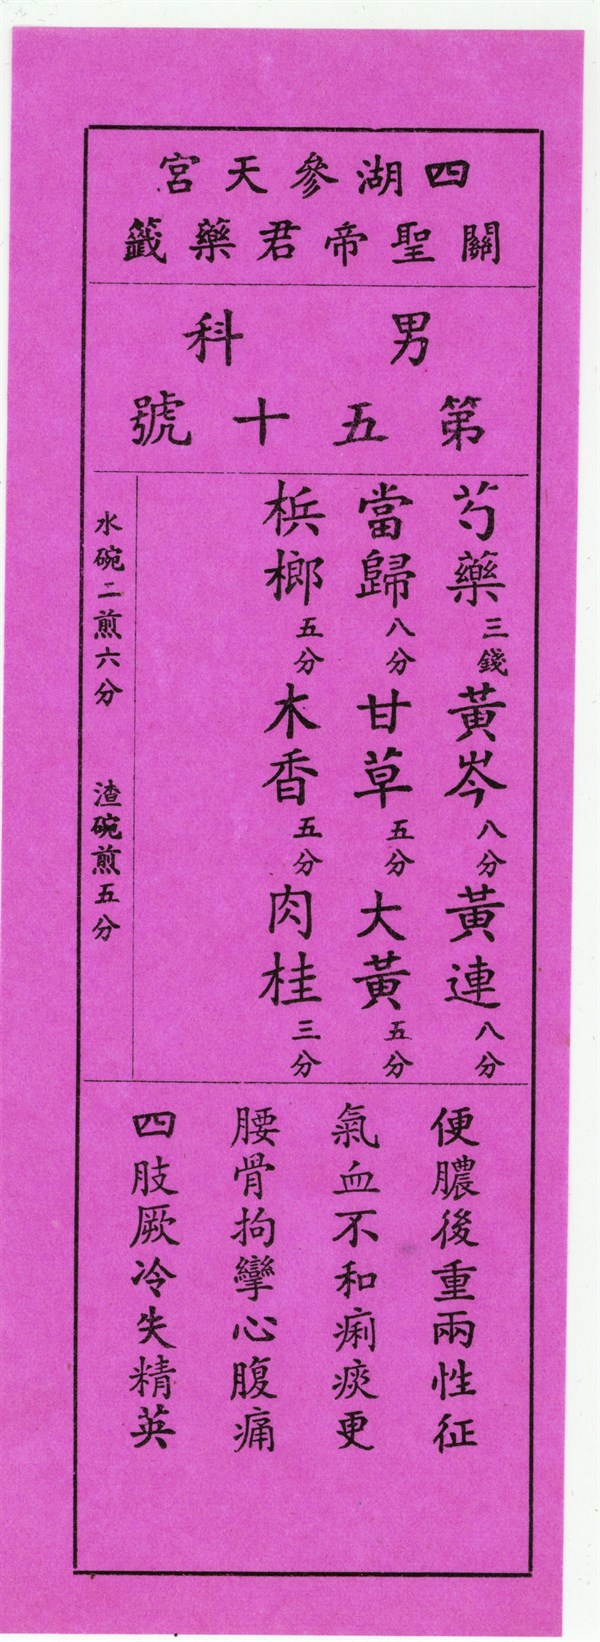 四湖參天宮
關聖帝君藥籤
男科
第五十號
芍藥三錢黃岑八分黃連八分
當歸八分甘草五分大黃五分
梹榔五分木香五分肉桂三分
水碗二煎六分 渣碗煎五分
便膿後重兩性征
氣血不和痢痰更
腰骨拘攣心腹痛
四肢厥冷失精英